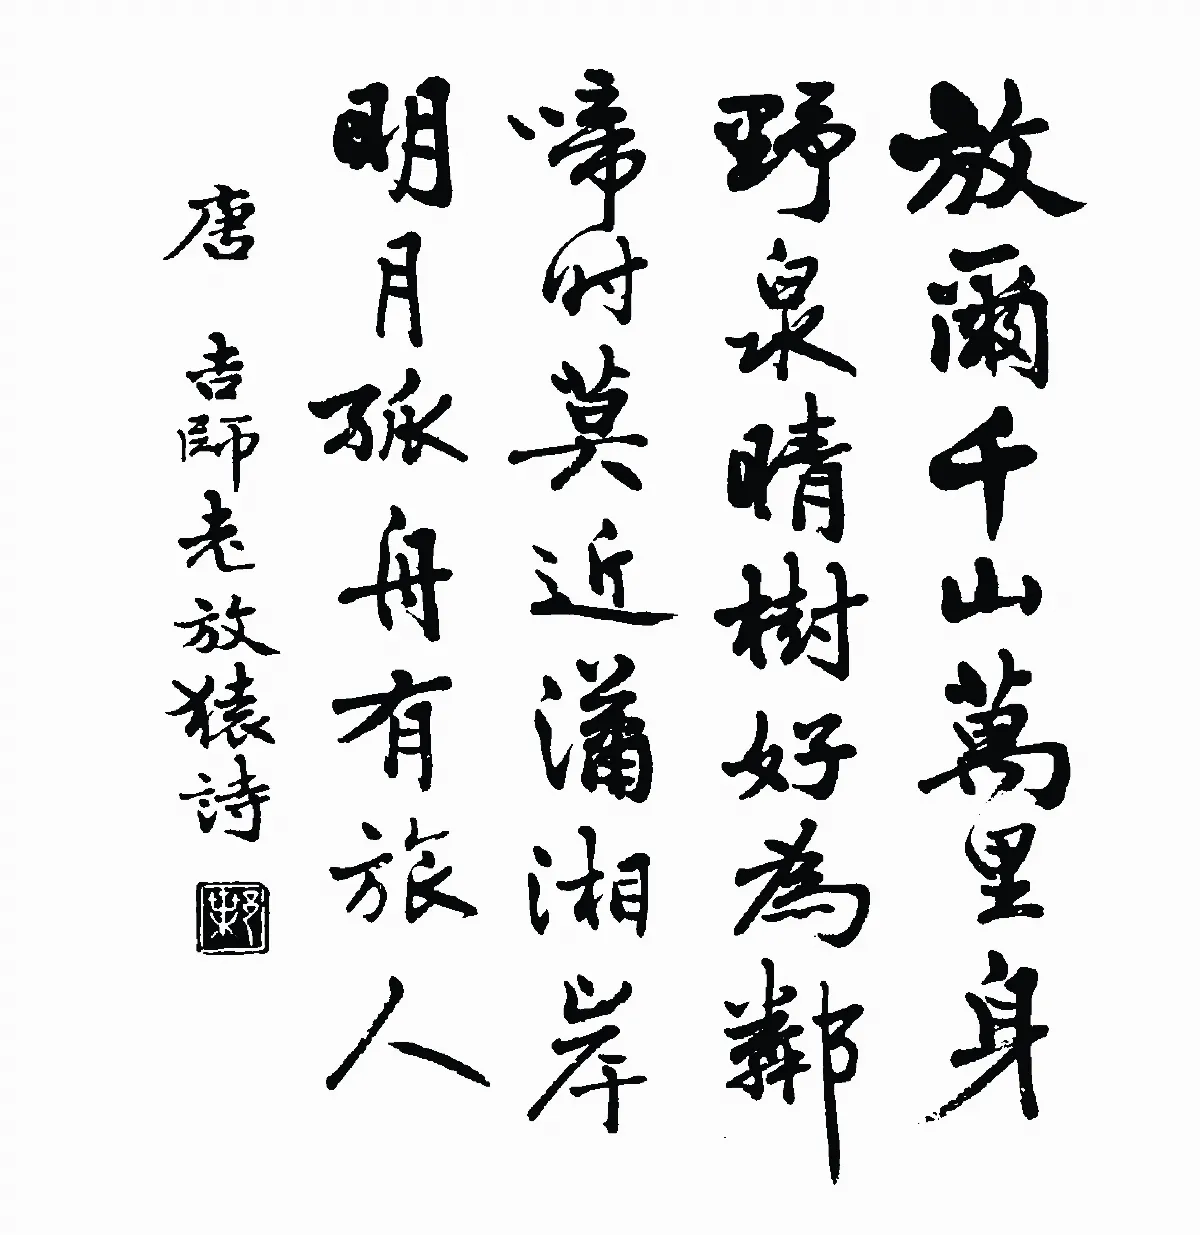 放爾千山萬里身
野泉晴樹好為鄰
啼时莫近瀟湘岸
明月孤舟有旅人
唐 吉師老放猿詩